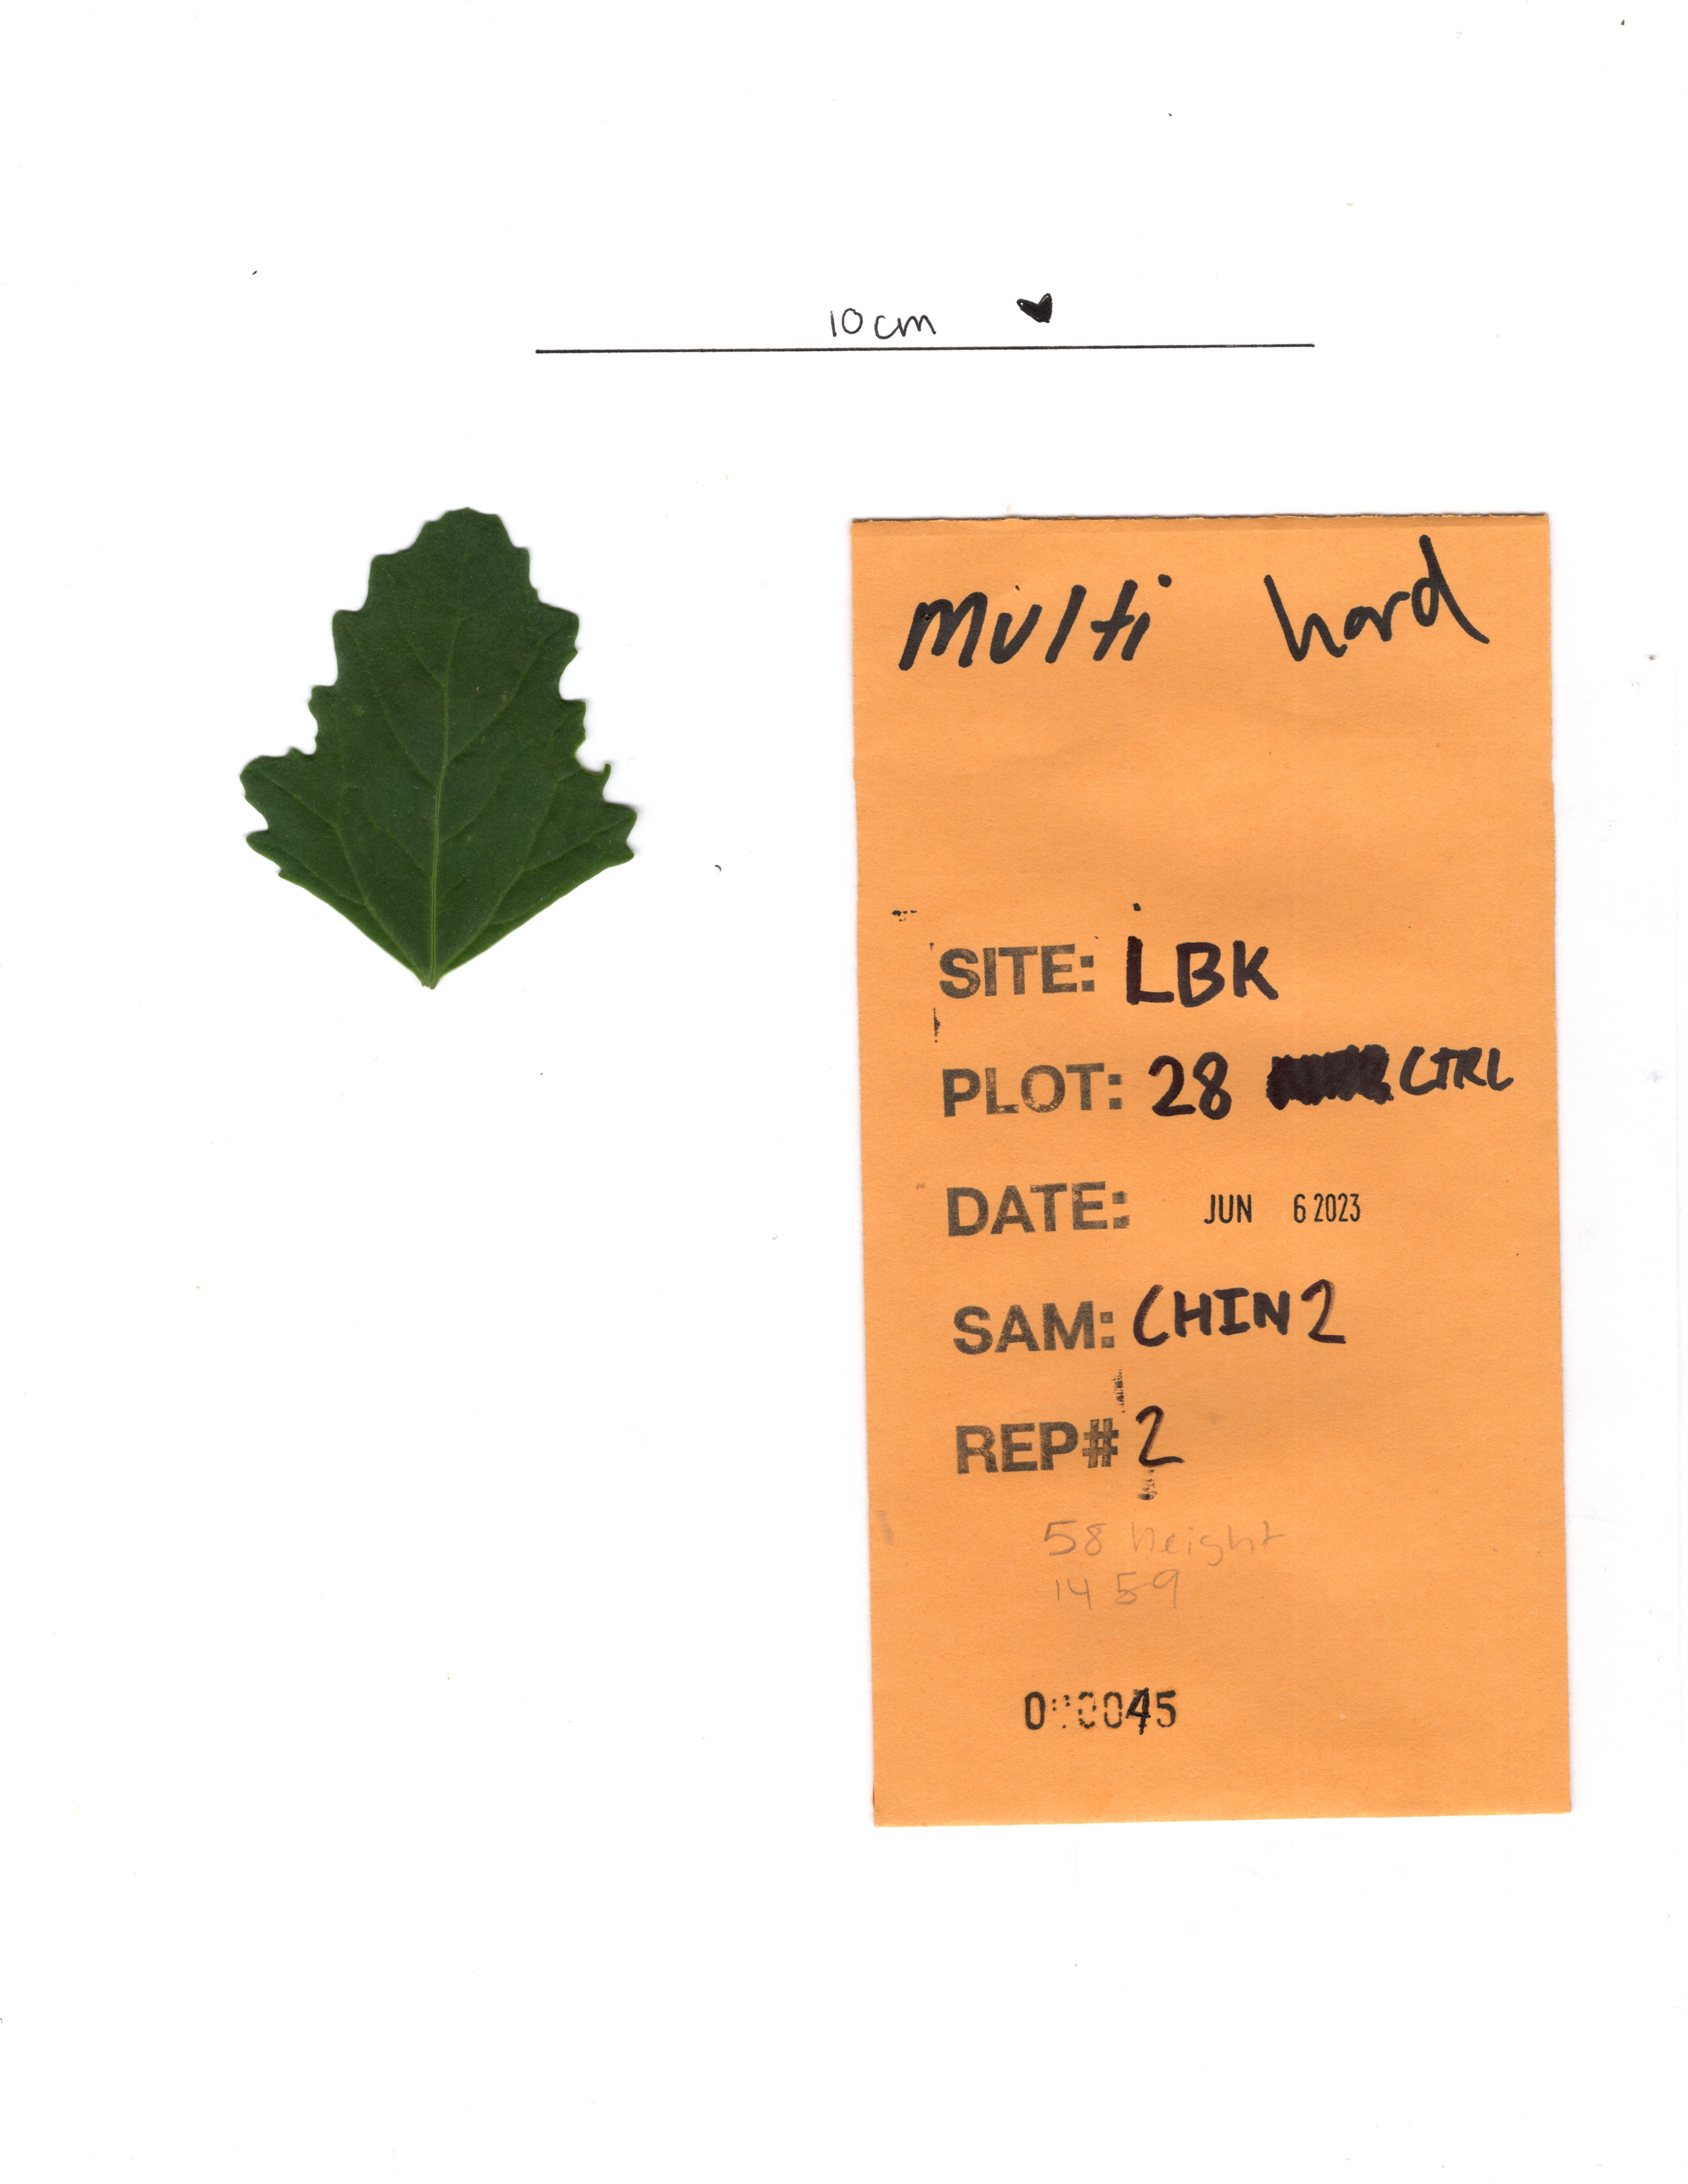 10cm
multi hard
SITE: LBK
PLOT: 28 CTRL
DATE: JUN 6 2023
SAM: CHIN2
REP# 2
58 height
1459
000045